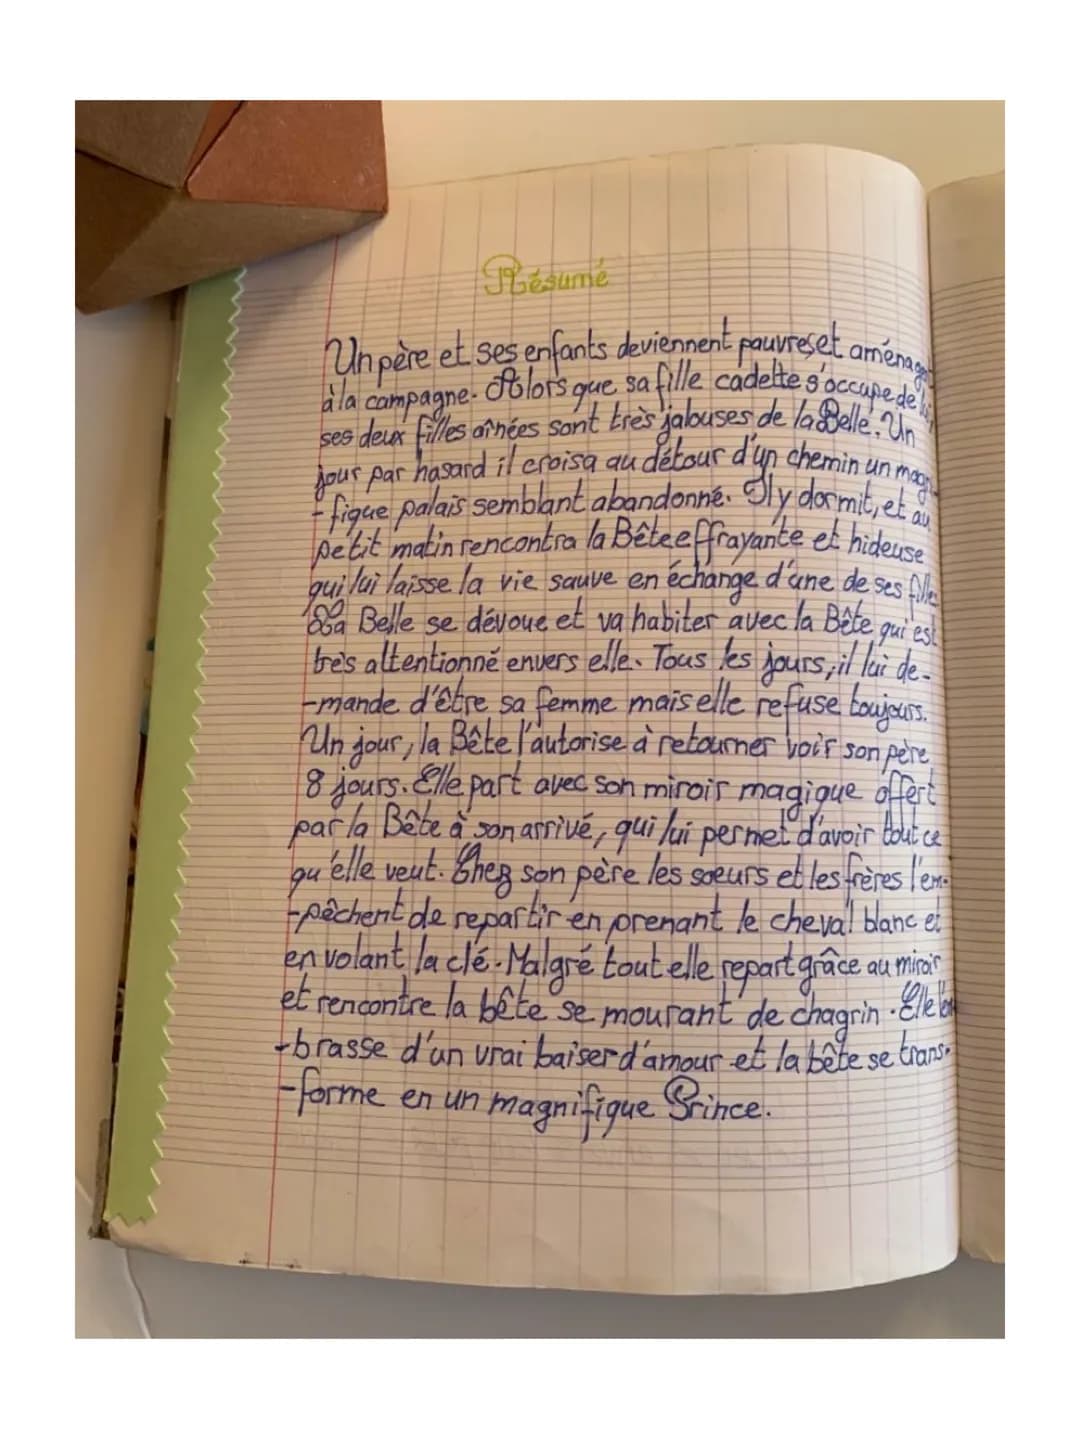 Résumé
Un père et ses enfants deviennent pauvres et aménagent
à la campagne. Alors que sa fille cadette s'occupe de lui,
ses deux filles aînées sont très jalouses de la Belle. Un
jour par hasard il croisa au détour d'un chemin un magni-
-fique palais semblant abandonné. Il y dormit, et au
petit matin rencontra la Bête effrayante et hideuse
qui lui laisse la vie sauve en échange d'une de ses filles
La Belle se dévoue et va habiter avec la Bête qui est
très attentionné envers elle. Tous les jours, il lui de-
-mande d'être sa femme mais elle refuse toujours.
Un jour, la Bête l'autorise à retourner voir son père
8 jours. Elle part avec son miroir magique offert
par la Bête à son arrivé, qui lui permet d'avoir tout ce
qu'elle veut. Chez son père les soeurs et les frères l'em-
-pêchent de repartir en prenant le cheval blanc et
en volant la clé. Malgré tout elle repart grâce au miroir
et rencontre la bête se mourant de chagrin. Elle l'em
-brasse d'un vrai baiser d'amour et la bête se trans-
-forme en un magnifique Prince.